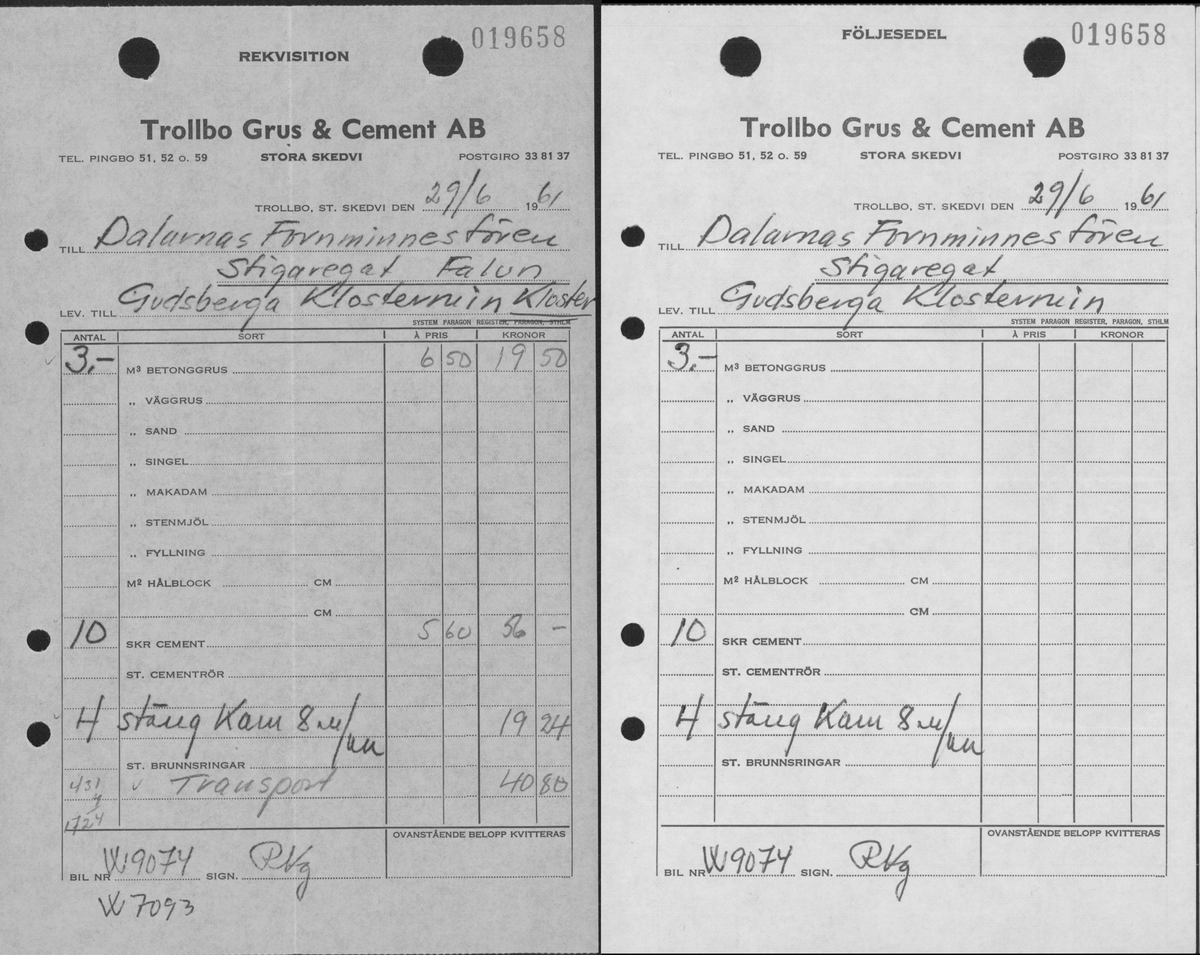 019658
REKVISITION
Trollbo Grus & Cement AB
TEL. PINGBO 51, 52 O. 59 STORA SKEDVI POSTGIRO 33 81 37
TROLLBO, ST. SKEDVI DEN 29/6 1961
TILL Dalarnas Fornminnesfören
Stigaregat Falun
LEV. TILL Gudsberga Klosterruin Kloster
SYSTEM PARAGON REGISTER, PARAGON, STHLM
ANTAL SORT À PRIS KRONOR
3,- M³ BETONGGRUS 6 50 19 50
„ VÄGGRUS
„ SAND
„ SINGEL
„ MAKADAM
„ STENMJÖL
„ FYLLNING
M² HÅLBLOCK CM
CM
10 SKR CEMENT 5 60 56 -
ST. CEMENTRÖR
4 stång Kam 8 m/m 19 24
ST. BRUNNSRINGAR
431 Transport 40 80
4
1724
OVANSTÅENDE BELOPP KVITTERAS
BIL NR W9074 SIGN.
W7093
FÖLJESEDEL
019658
Trollbo Grus & Cement AB
TEL. PINGBO 51, 52 O. 59 STORA SKEDVI POSTGIRO 33 81 37
TROLLBO, ST. SKEDVI DEN 29/6 1961
TILL Dalarnas Fornminnesfören
Stigaregat
LEV. TILL Gudsberga Klosterruin
SYSTEM PARAGON REGISTER, PARAGON, STHLM
ANTAL SORT À PRIS KRONOR
3,- M³ BETONGGRUS
„ VÄGGRUS
„ SAND
„ SINGEL
„ MAKADAM
„ STENMJÖL
„ FYLLNING
M² HÅLBLOCK CM
CM
10 SKR CEMENT
ST. CEMENTRÖR
4 stång Kam 8 m/m
ST. BRUNNSRINGAR
OVANSTÅENDE BELOPP KVITTERAS
BIL NR W9074 SIGN.